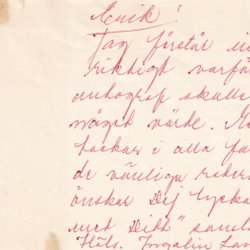 Erik!
Jag förstår in
riktigt varför
autograf skulle
något värde. M
tackar i alla fa
de vänliga radern
önskar Dig lycka
med Ditt" saml
Häls. Ingalill